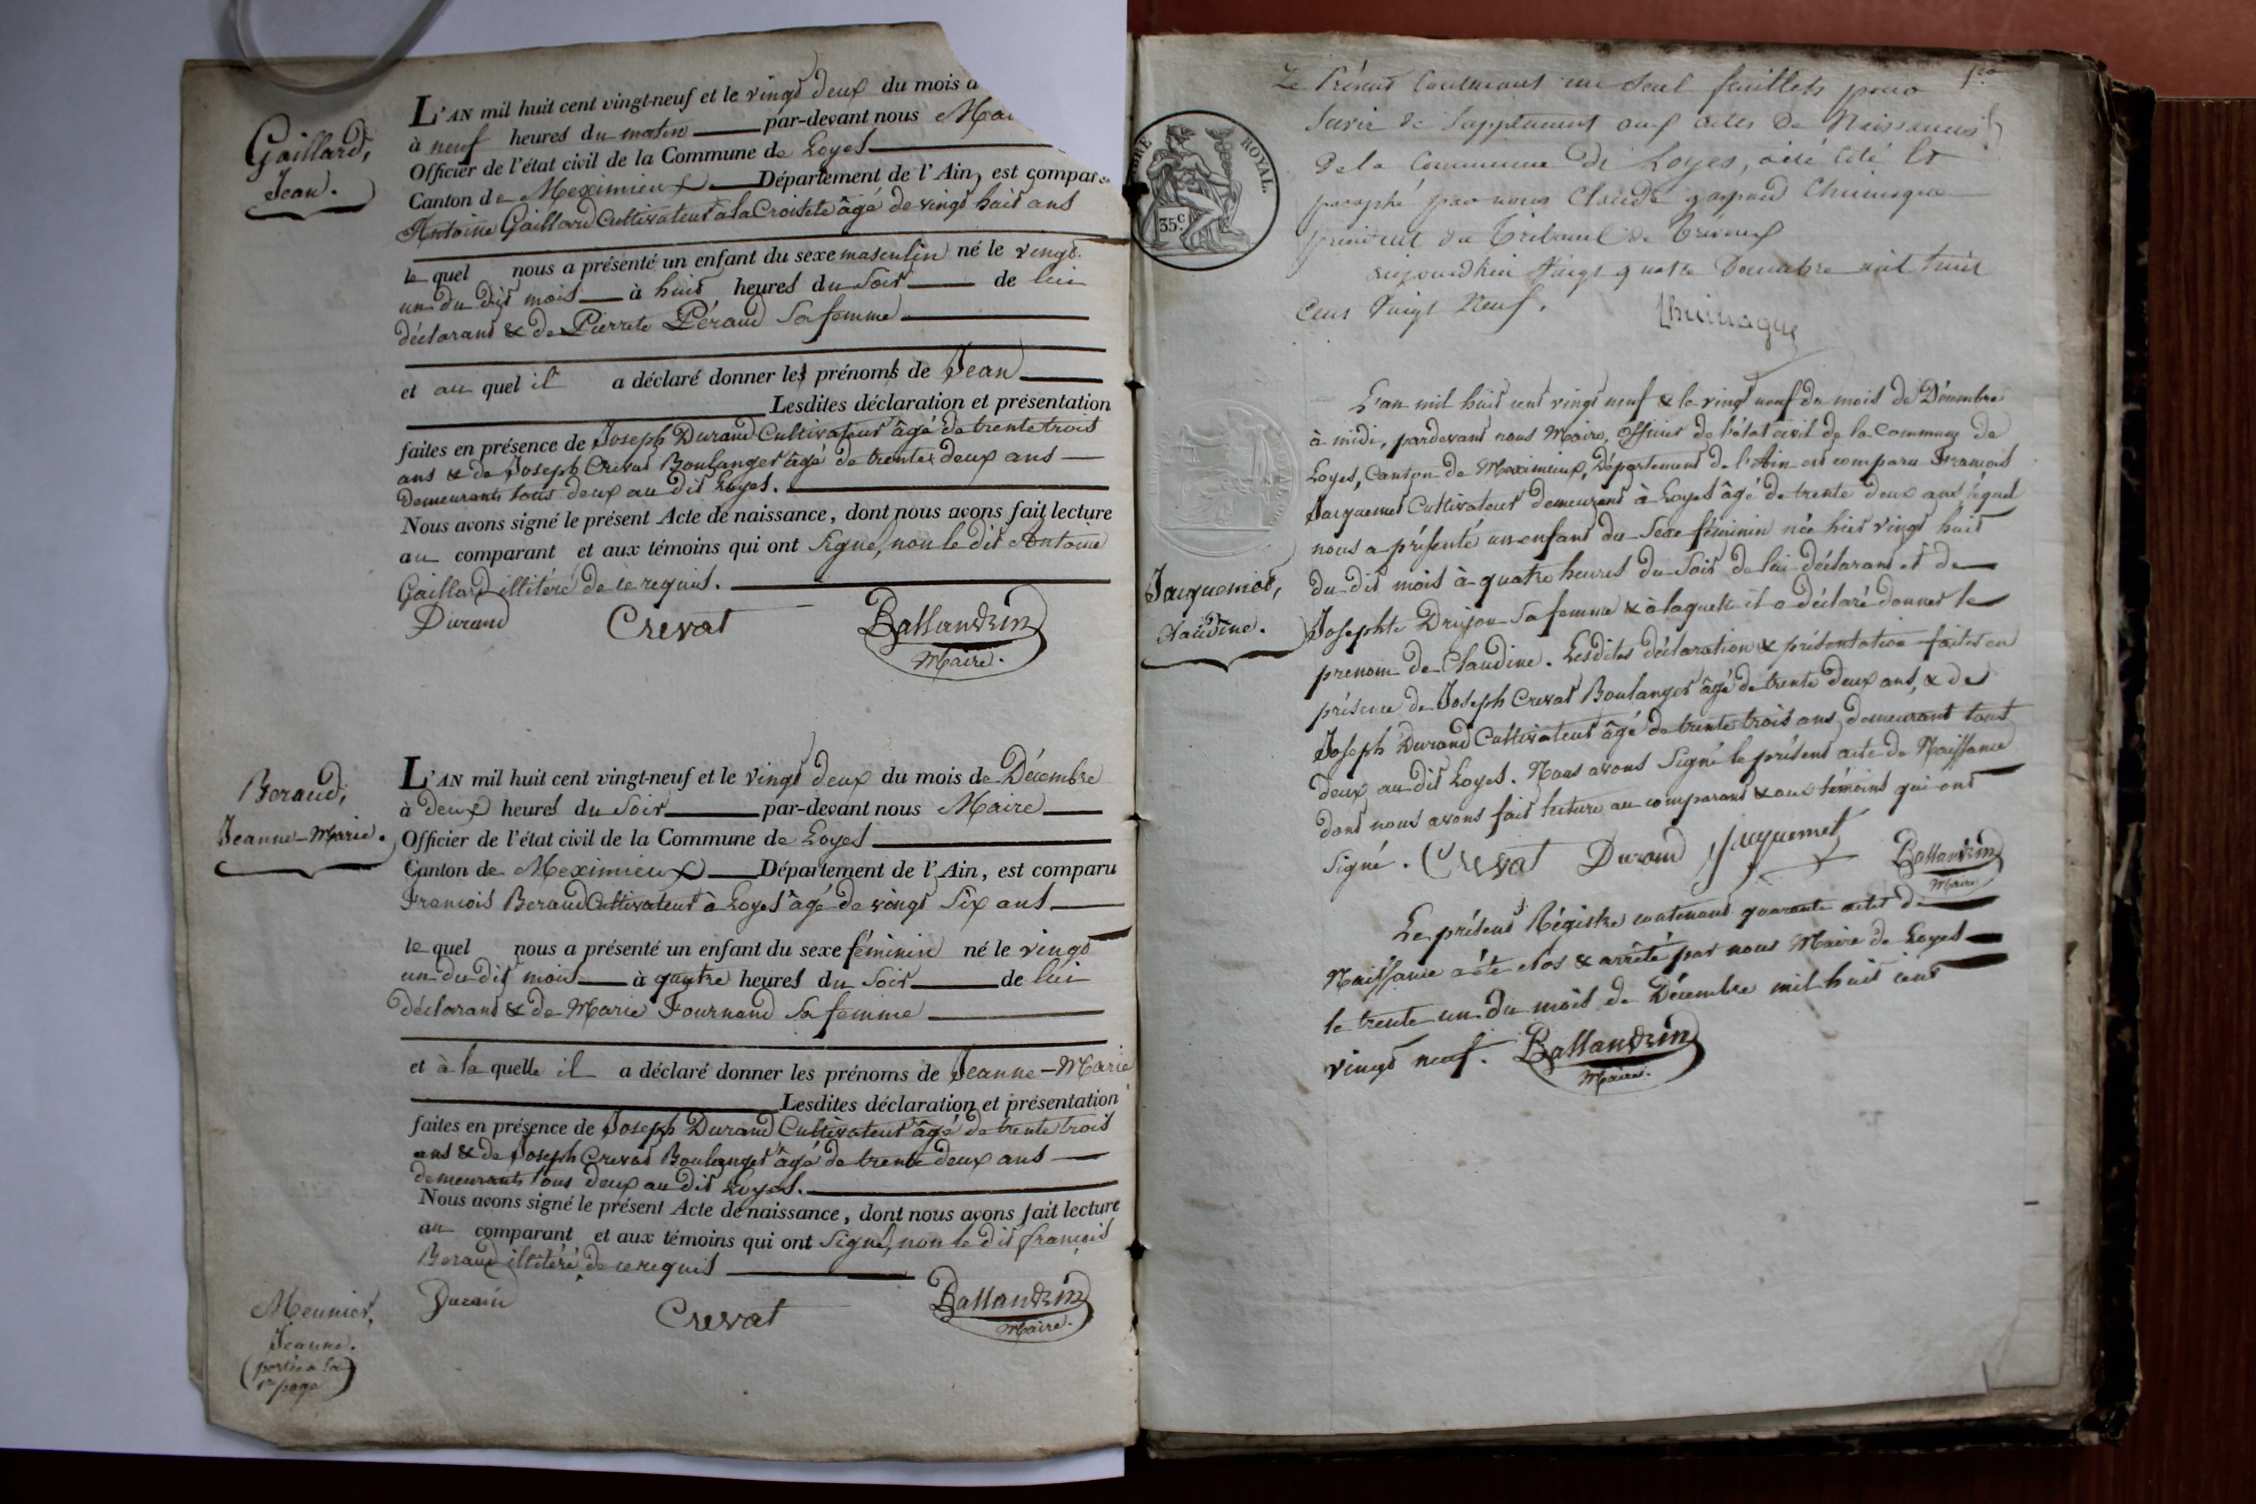 Gaillard,
Jean.
L'AN mil huit cent vingt-neuf et le vingt deux du mois d
à neuf heures du matin par-devant nous Mai
Officier de l'état civil de la Commune de Loyes
Canton de Meximieux Département de l'Ain, est compar
Antoine Gaillard Cultivateur à la Croisete âgé de vingt huit ans
le quel nous a présenté un enfant du sexe masculin né le vingt
un du dit mois à huit heures du Soir de lui
déclarant & de Pierrete Péraud Sa femme
et au quel il a déclaré donner les prénoms de Jean
Lesdites déclaration et présentation
faites en présence de Joseph Durand Cultivateur âgé de trente trois
ans & de Joseph Crevat Boulanger âgé de trente deux ans
Demeurants tous deux au dit Loyes.
Nous avons signé le présent Acte de naissance, dont nous avons fait lecture
au comparant et aux témoins qui ont Signé, non le dit Antoine
Gaillard illitéré de ce requis.
Durand Crevat Ballandrin
Maire.
Beraud,
Jeanne-Marie.
L'AN mil huit cent vingt-neuf et le vingt deux du mois de Décembre
à deux heures du Soir par-devant nous Maire
Officier de l'état civil de la Commune de Loyes
Canton de Meximieux Département de l'Ain, est comparu
François Beraud Cultivateur à Loyes âgé de vingt Six ans
le quel nous a présenté un enfant du sexe féminin né le vingt
un du dit mois à quatre heures du Soir de lui
déclarant & de Marie Fournand Sa femme
et à la quelle il a déclaré donner les prénoms de Jeanne-Marie
Lesdites déclaration et présentation
faites en présence de Joseph Durand Cultivateur âgé de trente trois
ans & de Joseph Crevat Boulanger âgé de trente deux ans
demeurants tous deux au dit Loyes.
Nous avons signé le présent Acte de naissance, dont nous avons fait lecture
au comparant et aux témoins qui ont Signé, non le dit françois
Beraud illitéré de ce requis
Durand Crevat Ballandrin
Maire.
Meunier,
Jeanne.
(portée à la
1re page)
Le Présent Contenant un Seul feuillets pour
Servir de Supplément aux actes de Naissances
de la Commune de Loyes, a été Coté Et
paraphé par nous Claude gaspard Chuinague
président du Tribunal de Trevoux
aujourd'hui Vingt quatre Décembre mil huit
Cent Vingt Neuf.
Chuinague
ROYAL.
35 c.
Jacquemet,
Claudine.
L'an mil huit cent vingt neuf & le vingt neuf du mois de Décembre
à midi, pardevant nous Maire, Officier de l'état civil de la Commune de
Loyes, Canton de Meximieux, Département de l'Ain est comparu François
Jacquemet Cultivateur demeurant à Loyes âgé de trente deux ans, lequel
nous a présenté un enfant du Sexe féminin née hier vingt huit
du dit mois à quatre heures du Soir de lui déclarant et de
Josephte Drujon Sa femme & à laquelle il a déclaré donner le
prenom de Claudine. Lesdites déclaration & présentation faites en
présence de Joseph Crevat Boulanger âgé de trente deux ans, & de
Joseph Durand Cultivateur âgé de trente trois ans demeurant tous
deux au dit Loyes. Nous avons Signé le présent acte de Naissance
dont nous avons fait lecture au comparant & aux témoins qui ont
Signé. Crevat Durand Jacquemet Ballandrin
Maire
Le présent Régistre contenant quarante actes de
Naissance a été clos & arrêté par nous Maire de Loyes
le trente un du mois de Décembre mil huit cent
vingt neuf. Ballandrin
Maire.